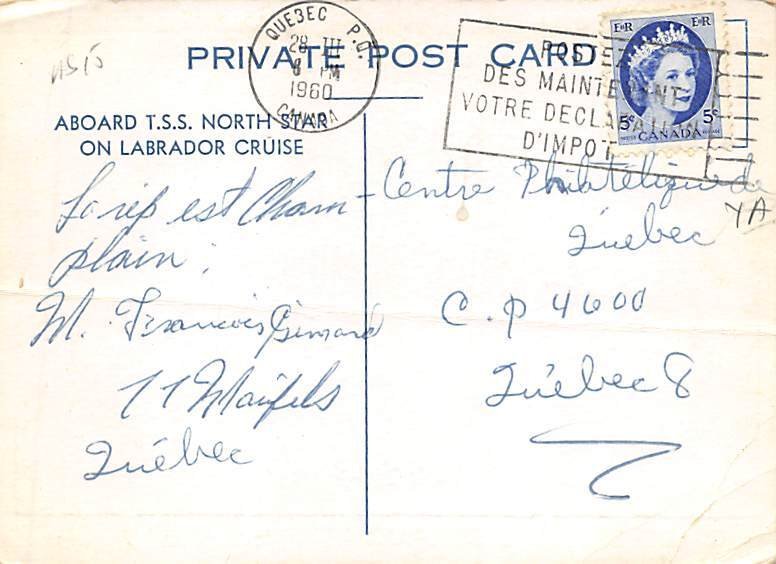 PRIVATE POST CARD
QUEBEC P.Q.
28 III
6 PM
1960
CANADA
POSTEZ
DES MAINTENANT
VOTRE DECLARATION
D'IMPOT
E II R E II R
5¢ 5¢
CANADA
ABOARD T.S.S. NORTH STAR
ON LABRADOR CRUISE
La rép est Cham-
plain.
M. Francois Simard
11
Québec
Centre Philatélique de
Québec
C.P 4600
Québec 8
YA